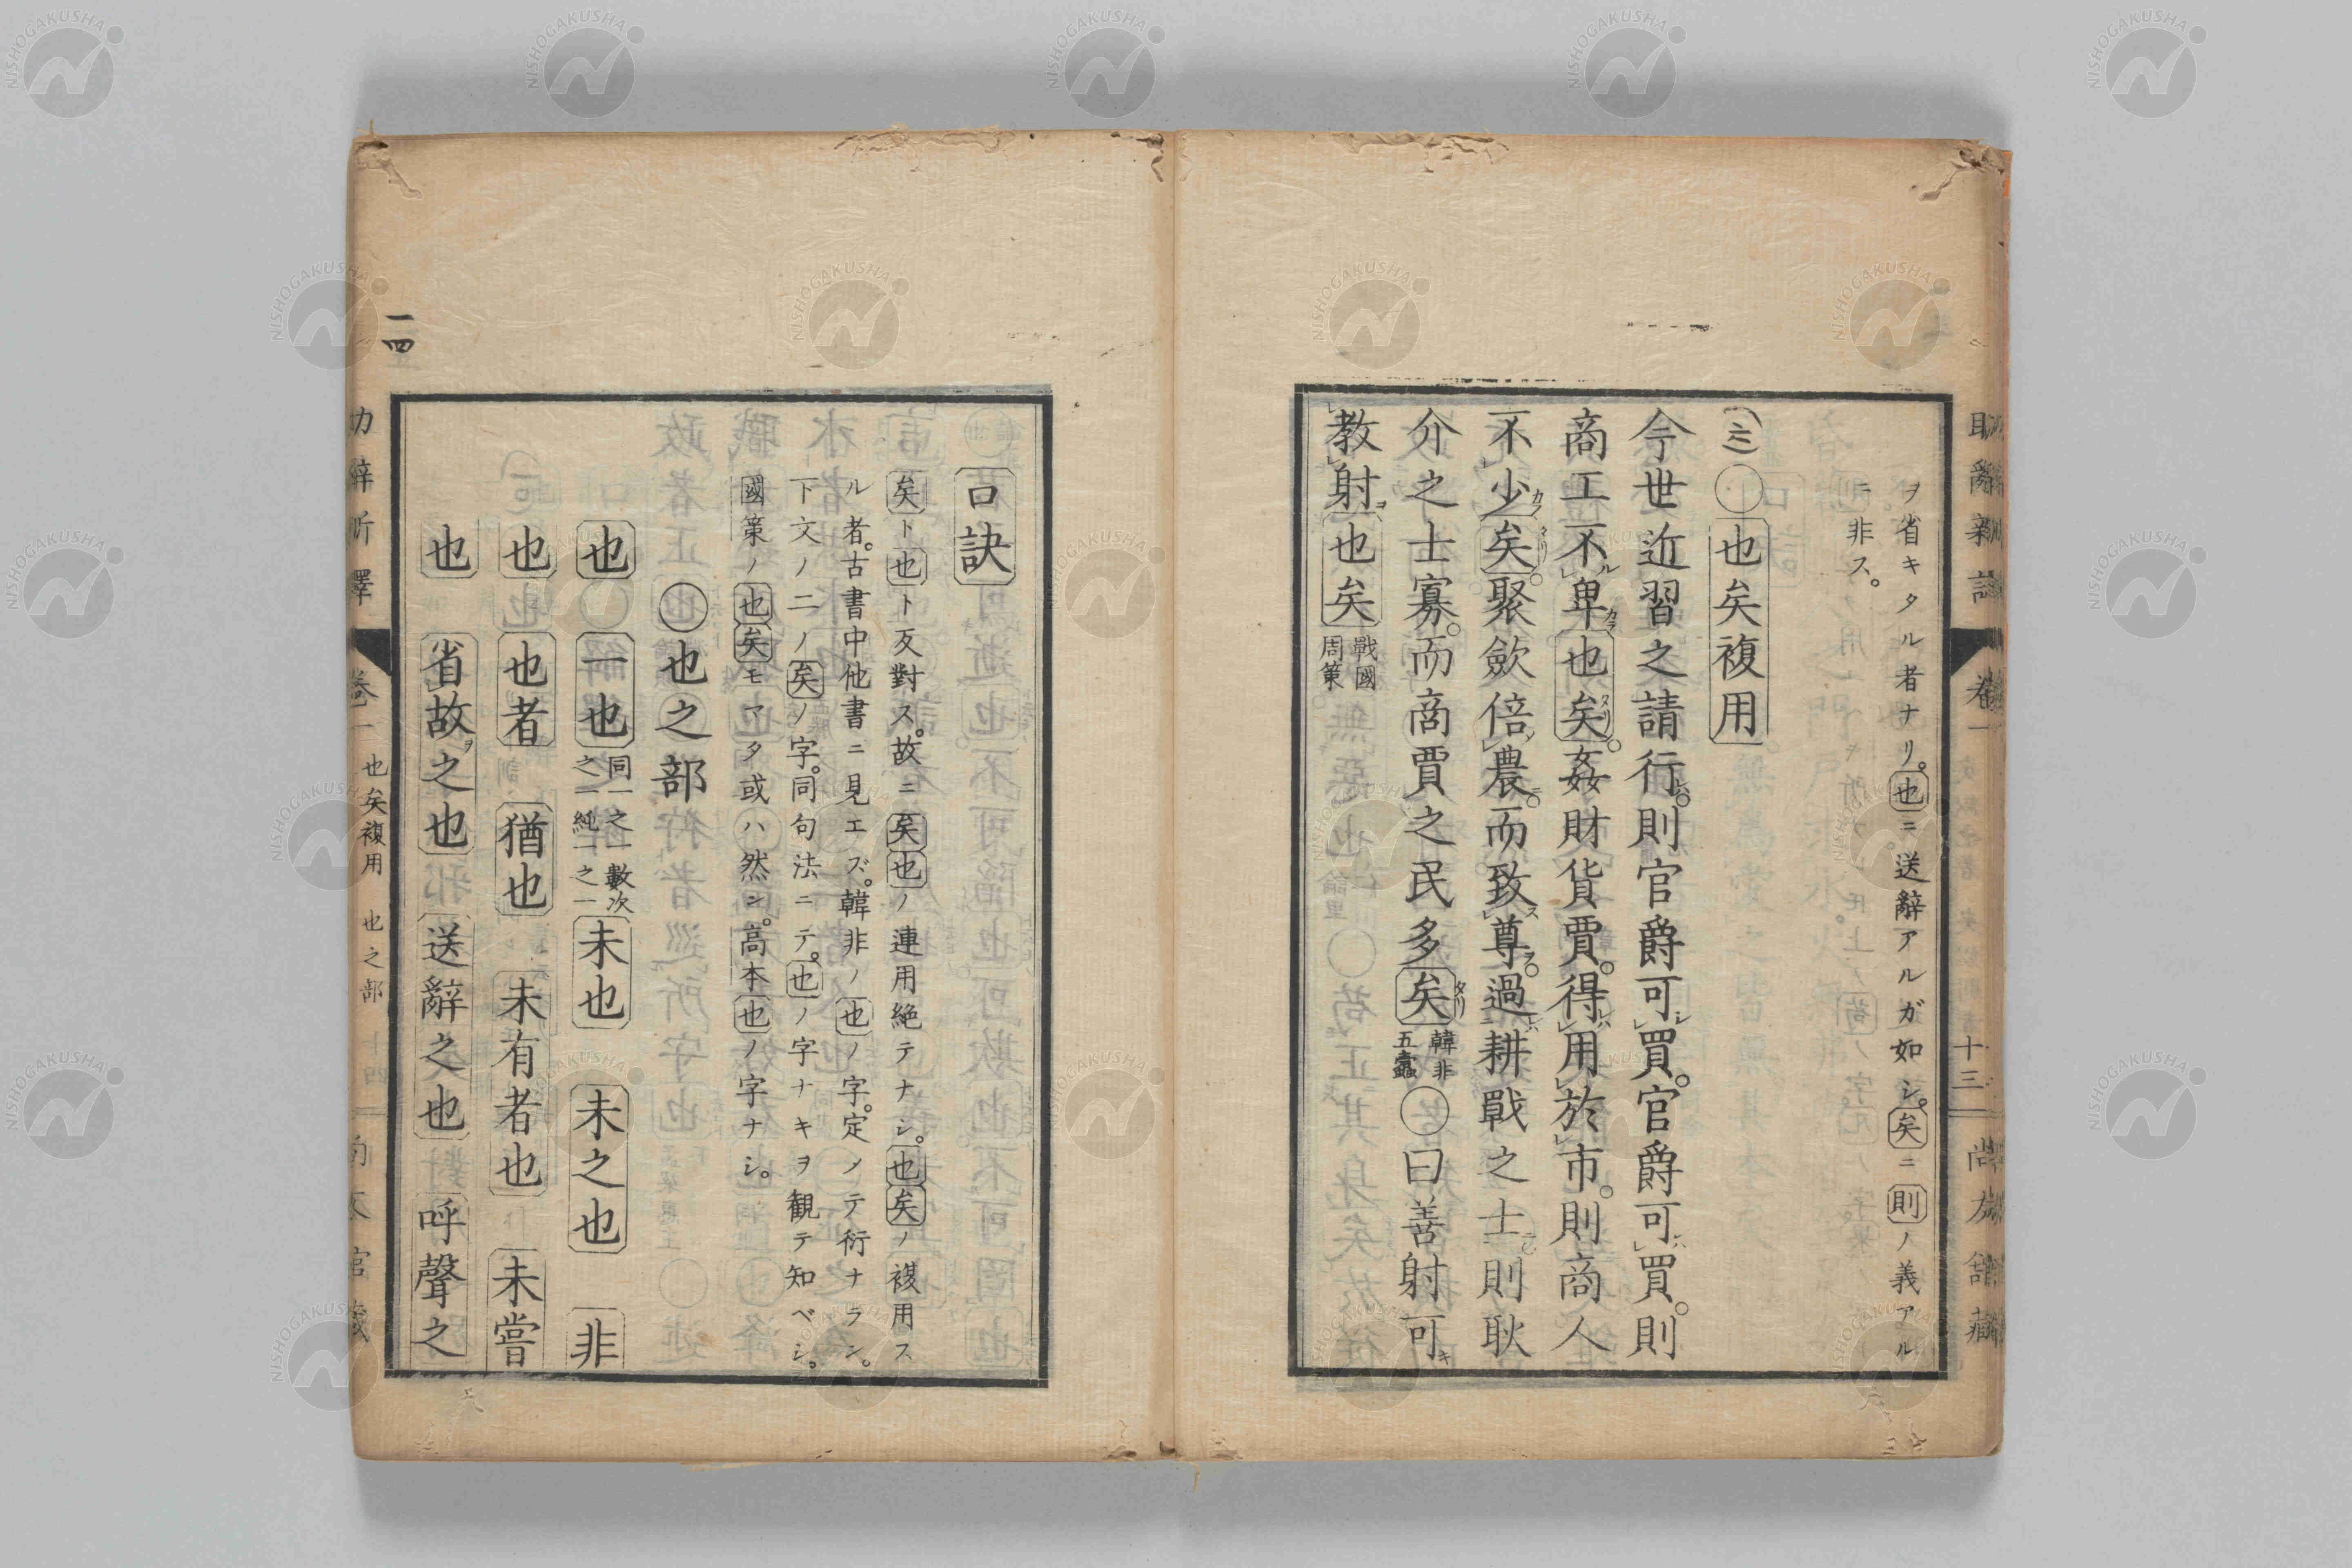 ヲ省キタル者ナリ。也ニ送辭アルガ如シ。矣ニ則ノ義アル
ニ非ス。
(三)〇也矣複用
今世近習之請行。則官爵可買。官爵可買。則
商工不卑也矣。姦財貨賈。得用於市。則商人
不少矣。聚歛倍農。而致尊過耕戰之士。則耿
介之士寡。而商賈之民多矣 韓非五蠹 〇曰善射可
教射也矣 戰國周策
卷一
十三
口訣
矣ト也ト反對ス。故ニ矣也ノ連用絶テナシ。也矣ノ複用ス
ル者。古書中他書ニ見エズ。韓非ノ也ノ字。定ノテ衍ナラン。
下文ノ二ノ矣ノ字。同句法ニテ。也ノ字ナキヲ觀テ知ベシ。
國策ノ也矣モマタ或ハ然ン。高本也ノ字ナシ。
〇也之部
也 一也 同一之一數次之一純一之一 未也 未之也 非
也 也者 猶也 未有者也 未嘗
也 省故之也 送辭之也 呼聲之
卷一 也矣複用 也之部 十四
一四
NISHOGAKUSHA